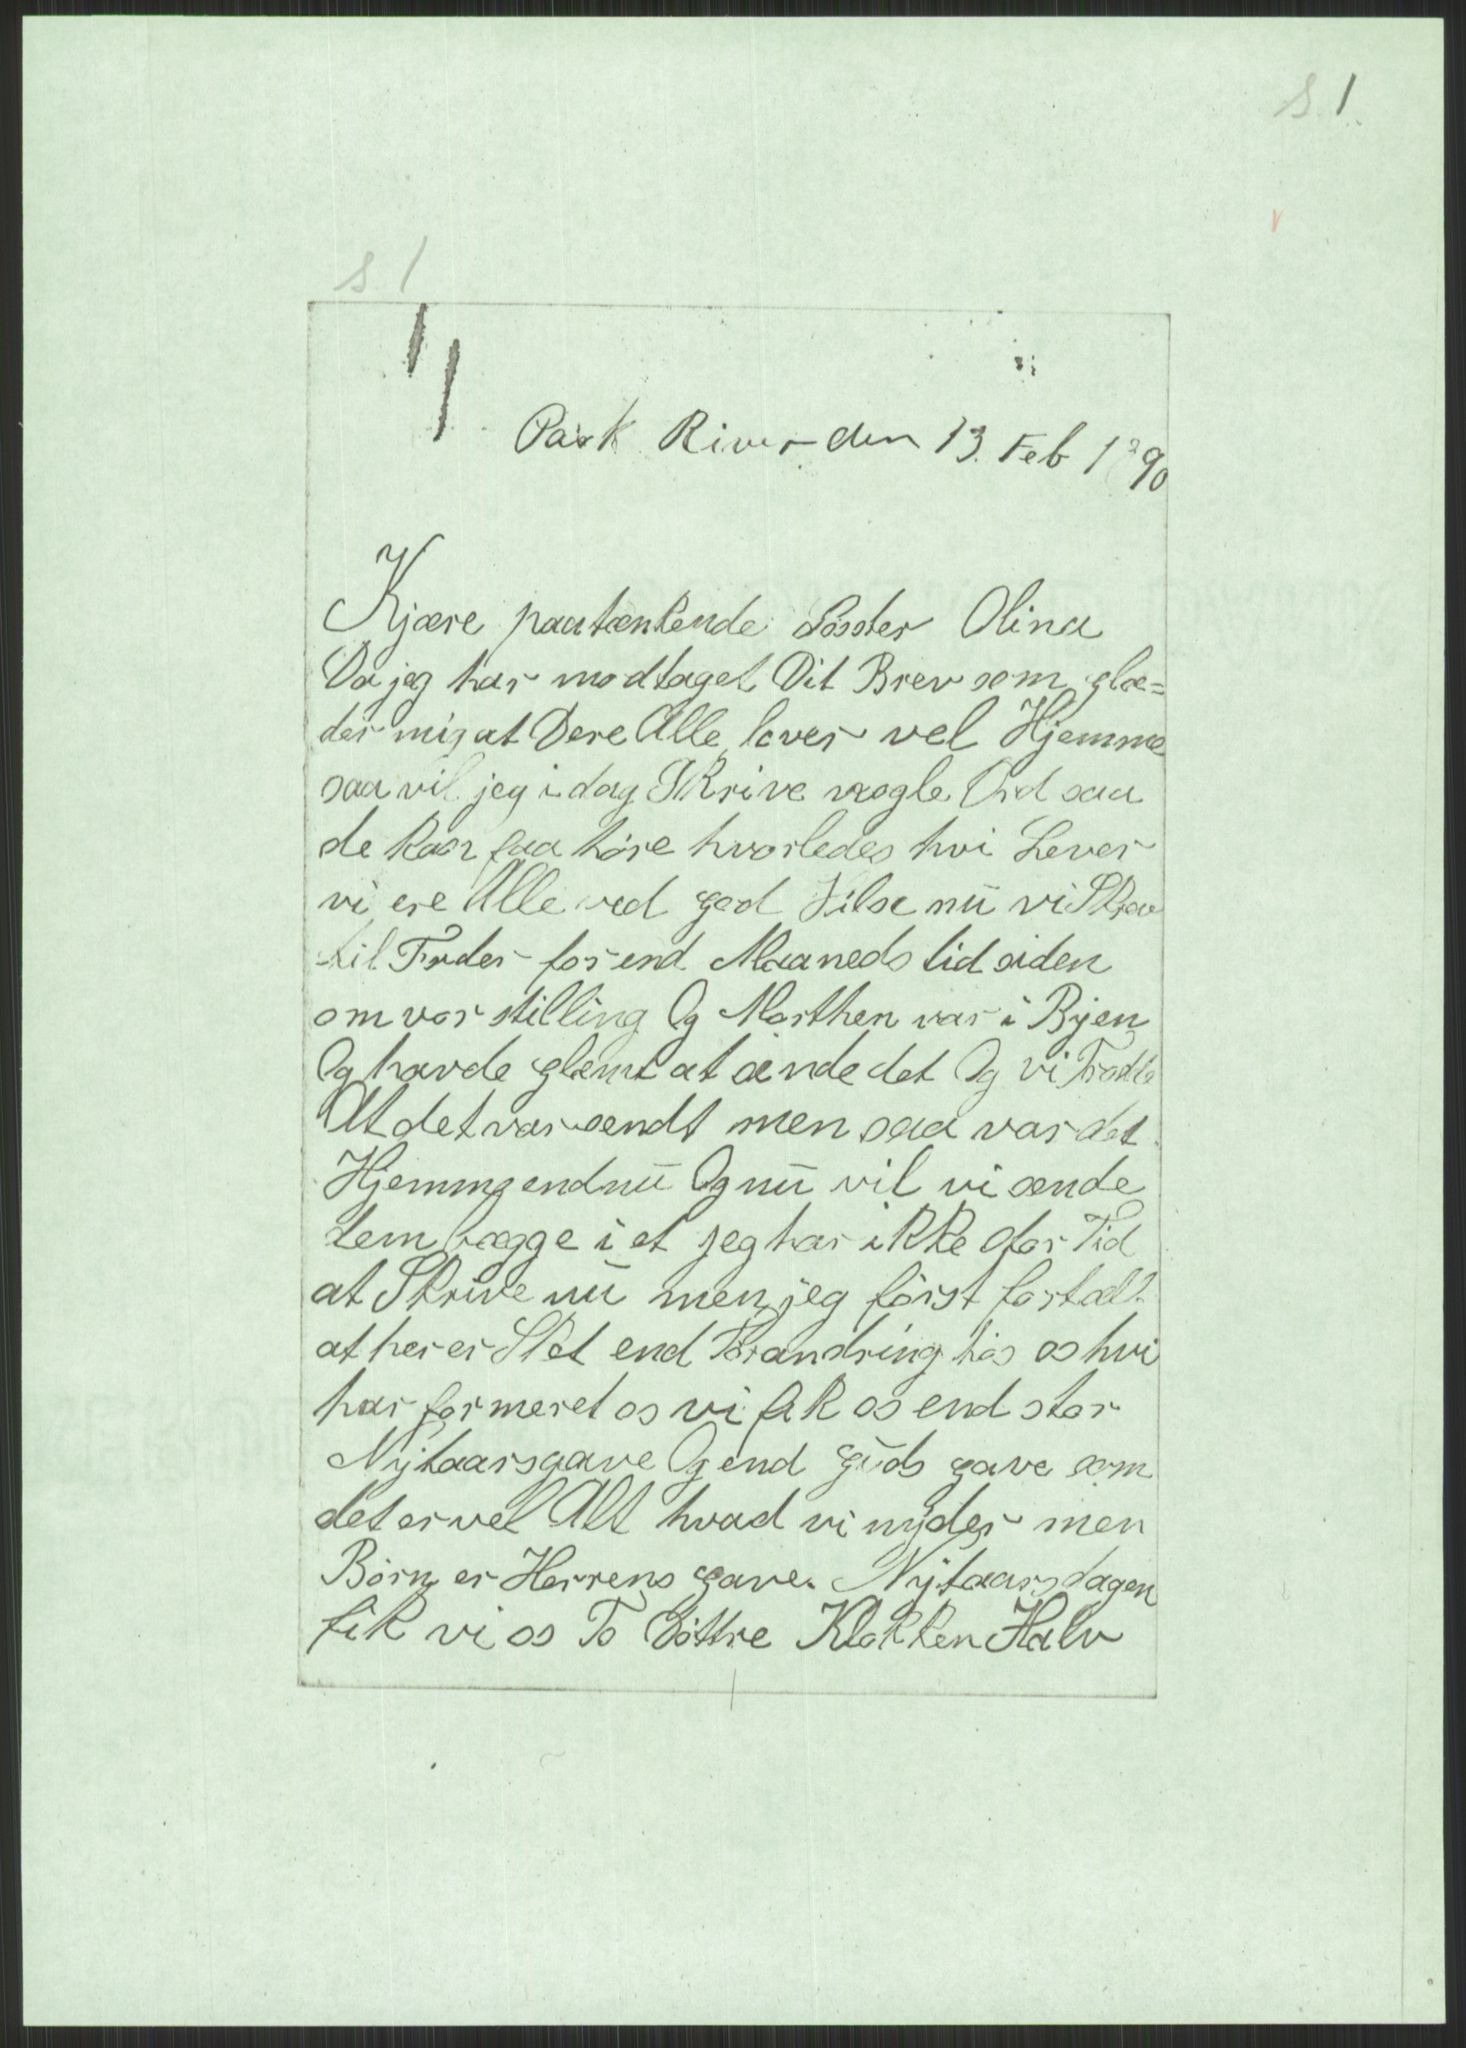 S. 1.
S 1
Park River den 13. Feb 1890
Kjære paatænkende Søster Olina
Da jeg har modtaget Dit Brev som glæ=
der mig at Dere Alle lever vel Hjemme
saa vil jeg i dag Skrive nogle Ord saa
de kan faa høre hvorledes hvi Lever
vi ere Alle ved god Hilse nu vi Skrev
til Fader for end Maaneds tid siden
om vor stilling Og Morthen var i Byen
Og havde glemt at sænde det Og vi Trodde
At det var sendt men saa var det
Hjemme endnu Og nu vil vi sænde
dem begge i et jeg har ikke stor Tid
at Skrive nu men jeg først fortælle
at her er Sket end Forandring hos os hvi
har formeret os vi fik os end stor
Nytaarsgave Og end Guds gave som
det er vel Alt hvad vi nyder men
Børn er Herrens gave. Nytaarsdagen
fik vi os To Døttre Klokken Halv